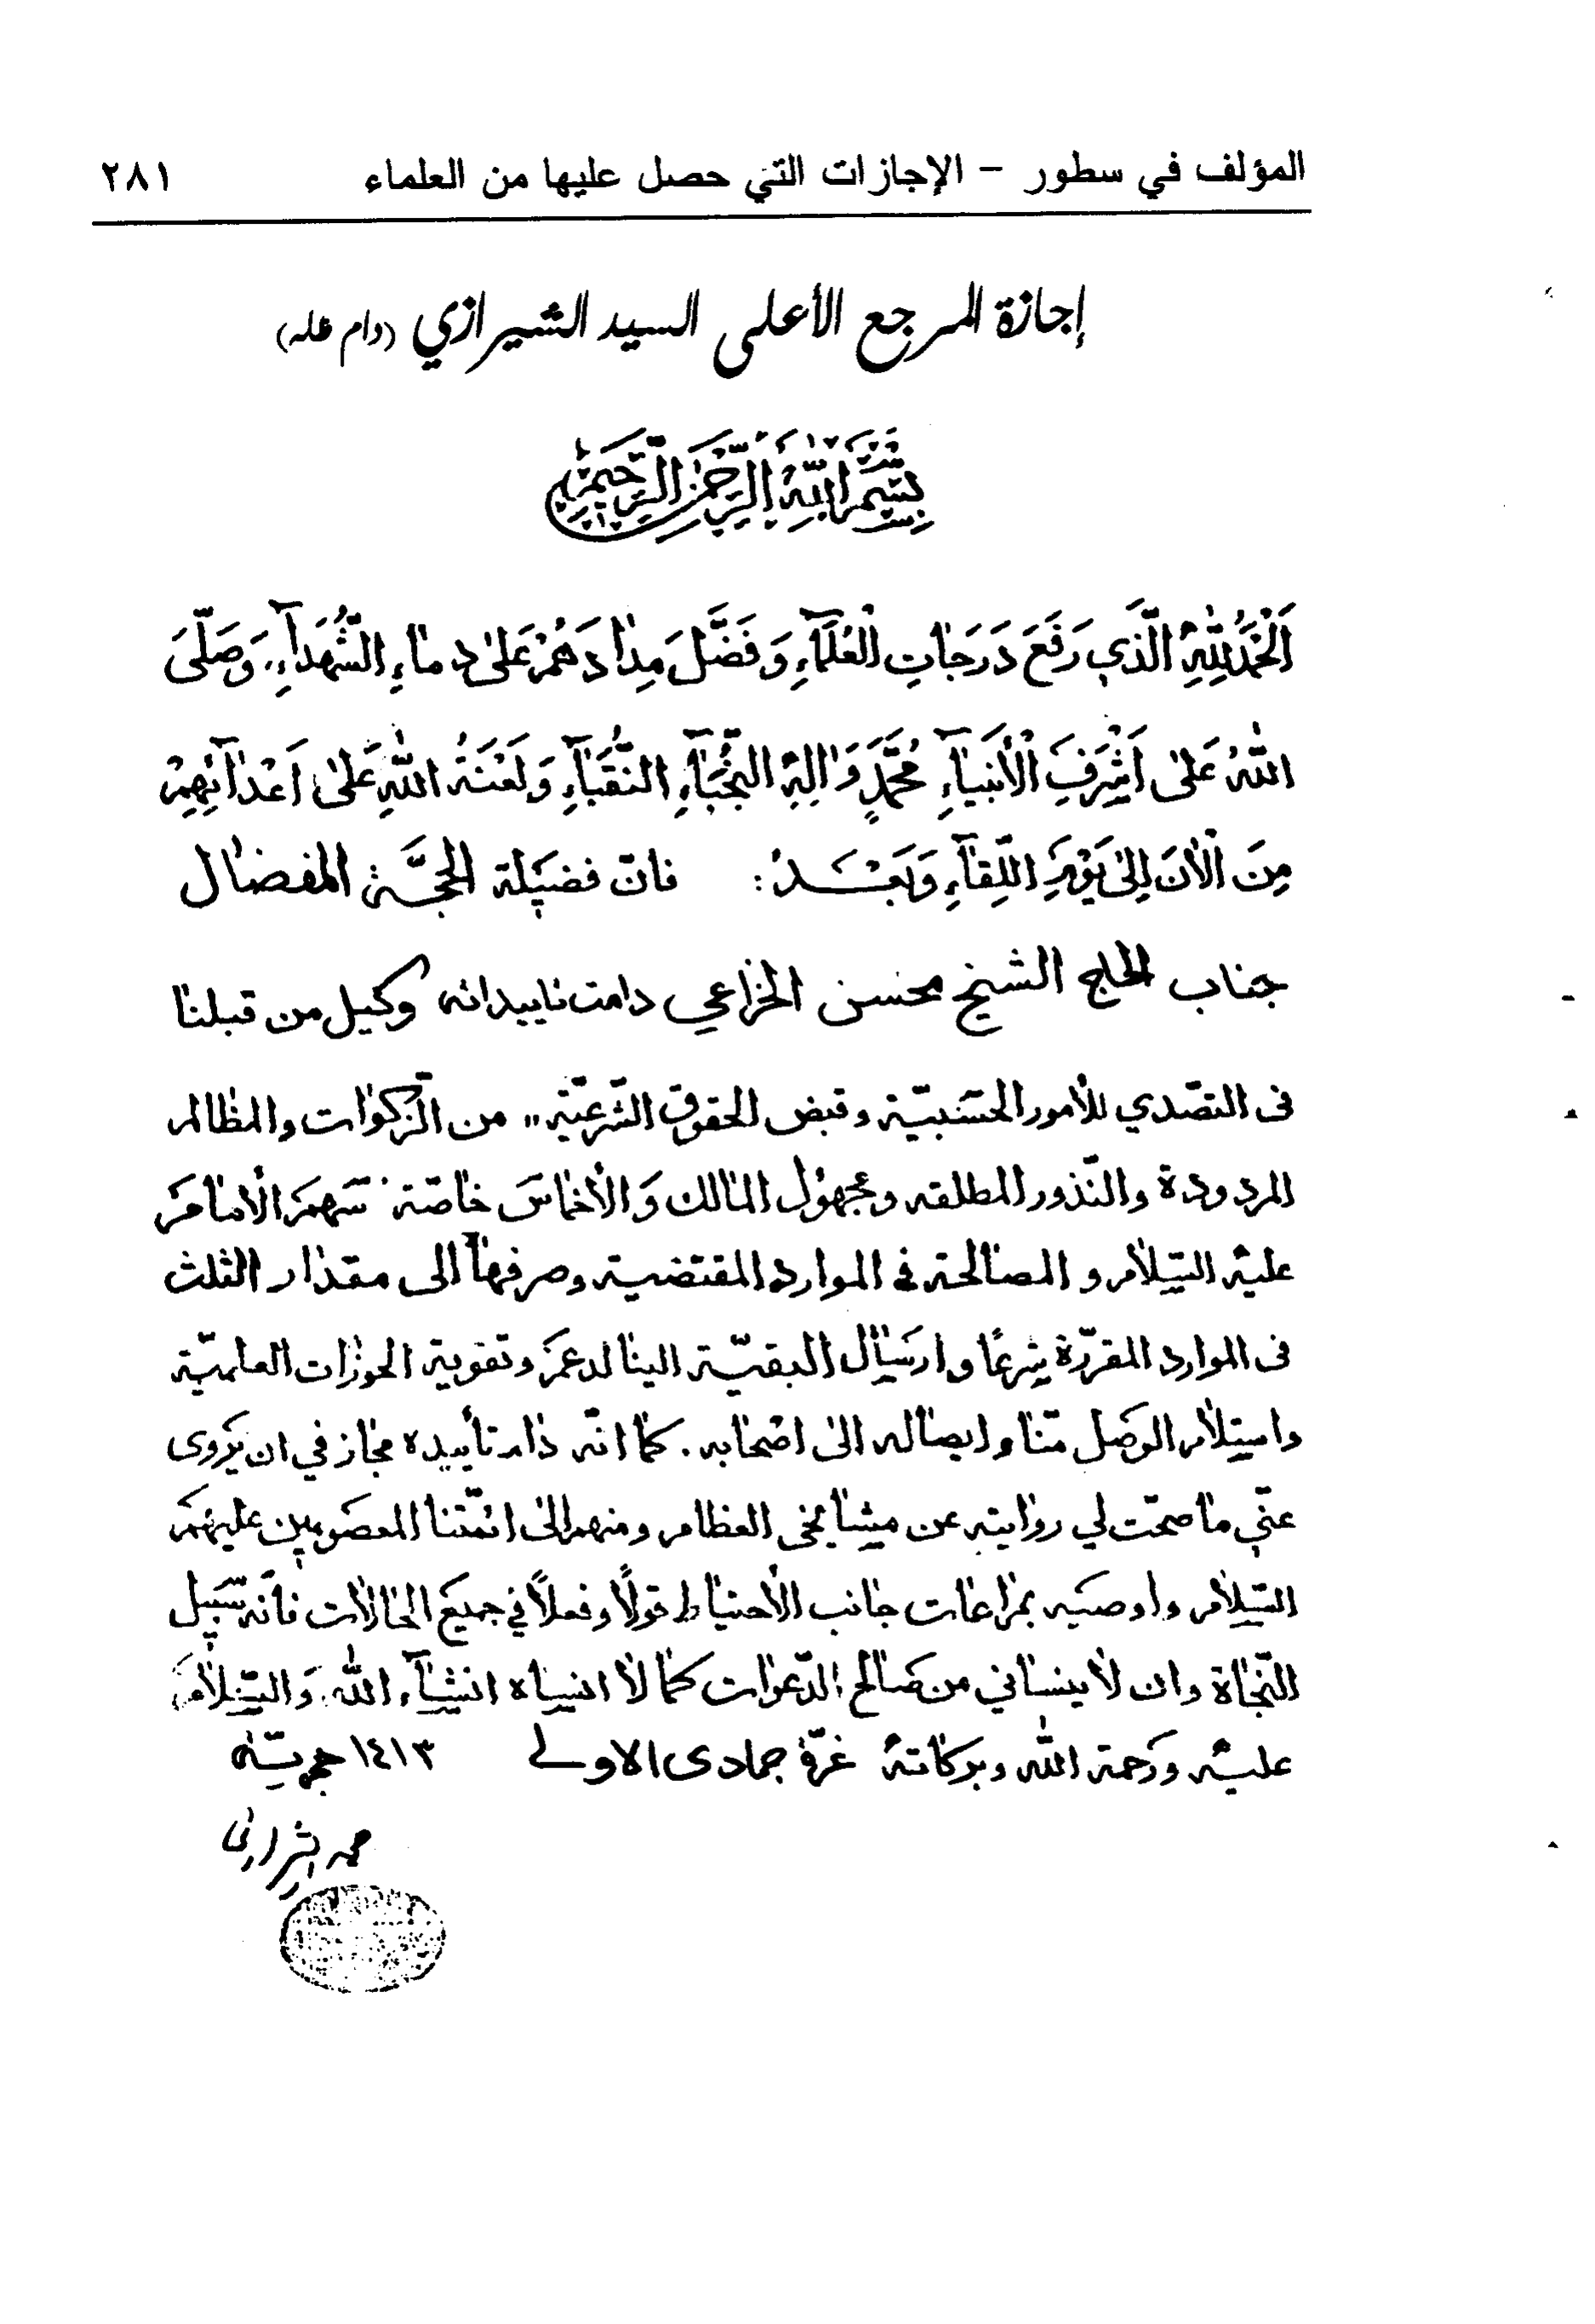 المؤلف في سطور - الإجازات التي حصل عليها من العلماء ٢٨١
إجازة المرجع الأعلى السيد الشيرازي (دام ظله)
بِسْمِ اللهِ الرَّحْمٰنِ الرَّحِيمِ
اَلْحَمْدُلِلّٰهِ الَّذِي رَفَعَ دَرَجَاتِ الْعُلَمَآءِ وَفَضَّلَ مِدَادَهُمْ عَلىٰ دِمَاءِ الشُّهَدآءِ، وَصَلَّىَ
اللهُ عَلىٰ اَشْرَفِ الْأَنْبِيآءِ مُحَمَّدٍ وَالِهِ النُّجَبَآءِ النُّقَبَآءِ وَلَعْنَةُ اللهِ عَلىٰ اَعْدآئِهِمْ
مِنَ الْأنَ اِلىٰ يَوْمِ اللِّقآءِ وَبَعْـــدُ: فان فضيلة الحجَّة المفضال
جناب الحاج الشيخ محسن الخزاعي دامت تاييداته وكيل من قبلنا
فى التصّدي للأمور الحسَبيّة وقبض الحقوق الشرّعيّة،، من الزّكوات والمظالم
المردودة والنّذور المطلقه ومجهول المالك وَالأخماسَ خاصّة سَهمَ الأمامَ
عليه السّلام و المصالحة في الموارد المقتضية وصرفها الى مقدار الثلث
فى الموارد المقرّرة شرعًا وارسَال البقيّة الينا لدعمَ وتقوية الحوزات العلميّة
واستلام الوَصل منّا وايصاله الىٰ اصْحابه. كما انّه دام تأييده مجاز في ان يَروى
عنّي ما صحّت لي روايته عن مشايخى العظام ومنهم الىٰ ائمّتنا المعصَومين عليهمَ
السّلام واوصيَه بمراعات جانب الأحتياط قولًا وفعلاً في جميع الحالات فأنّه سَبيل
النّجاة وان لا ينساني من صَالح الدّعوات كما لا انساه انشآء الله وَالسّلام
عليه وَرحمة الله وبركاته غرّة جمادى الاولى ١٤١٣ هجريّة
محمد الشيرازي